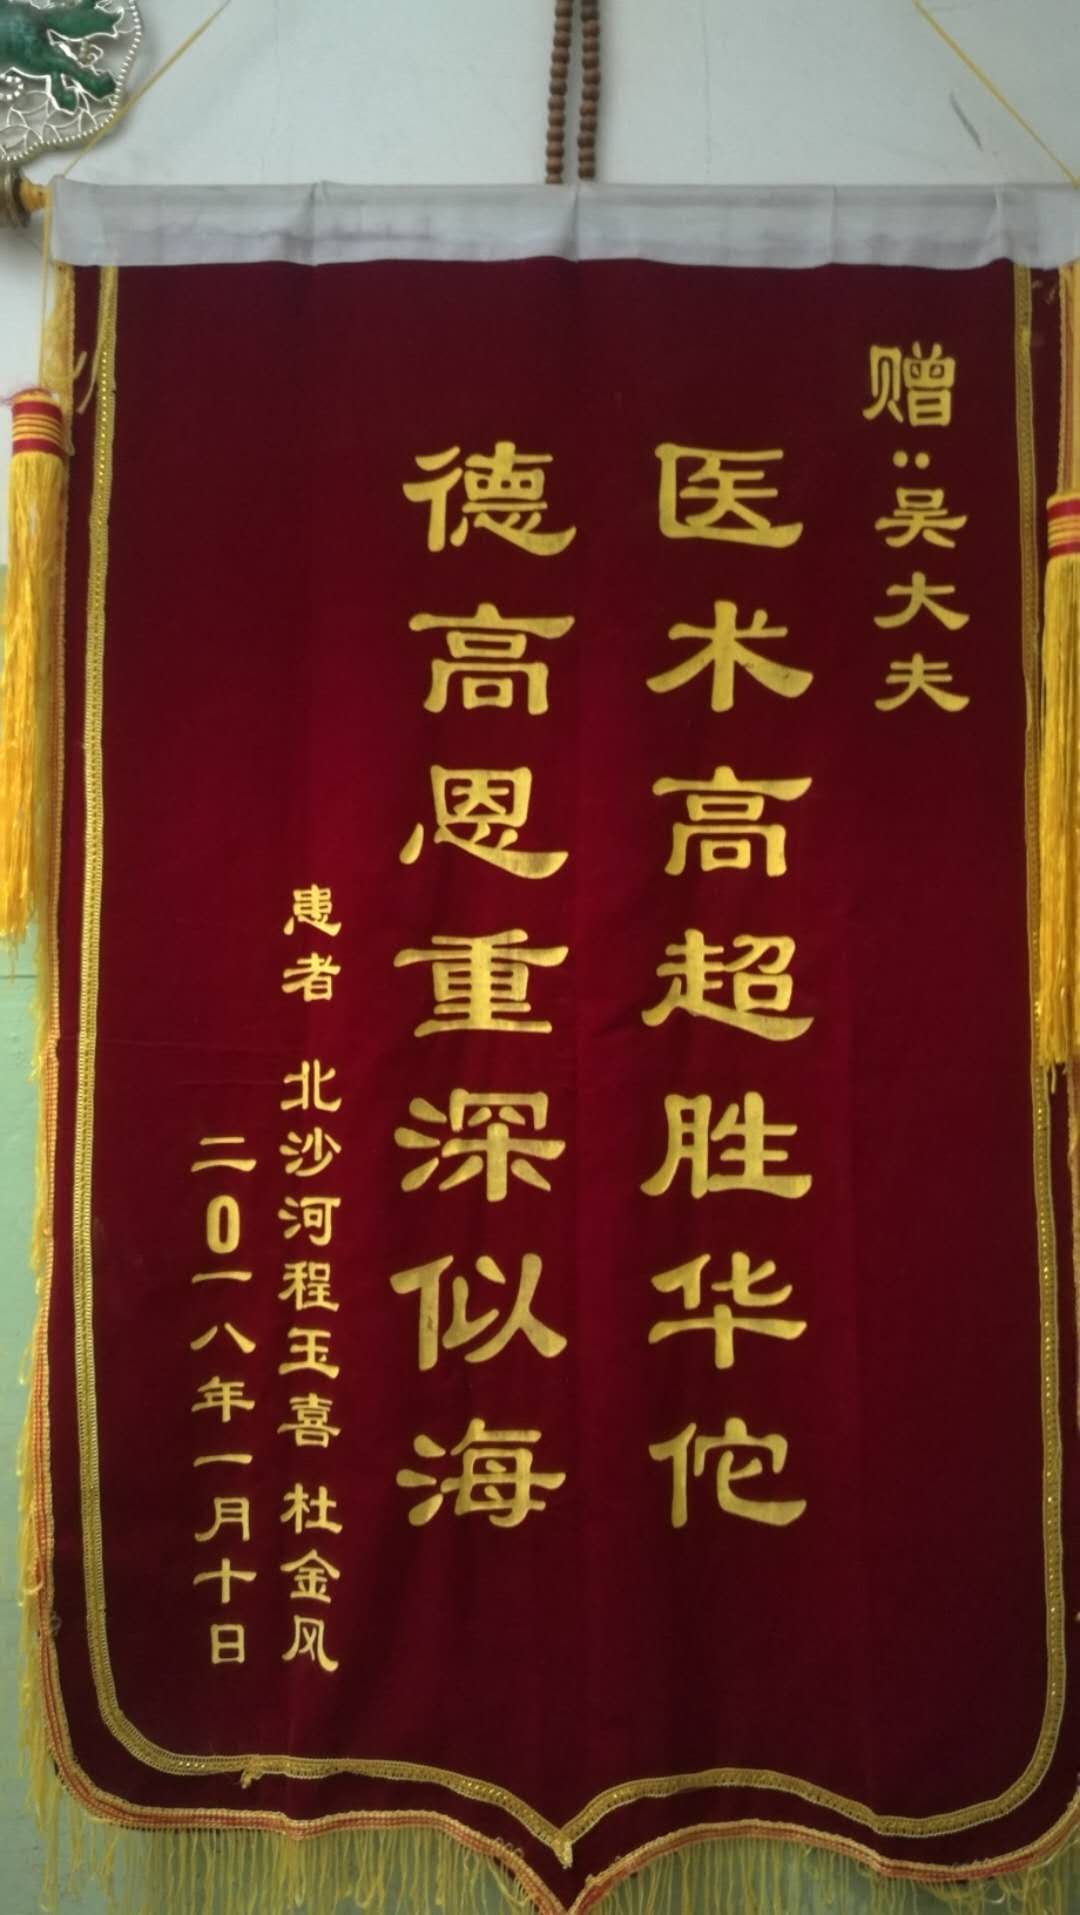 赠:吴大夫
医术高超胜华佗
德高恩重深似海
患者 北沙河程玉喜 杜金风
二0一八年一月十日